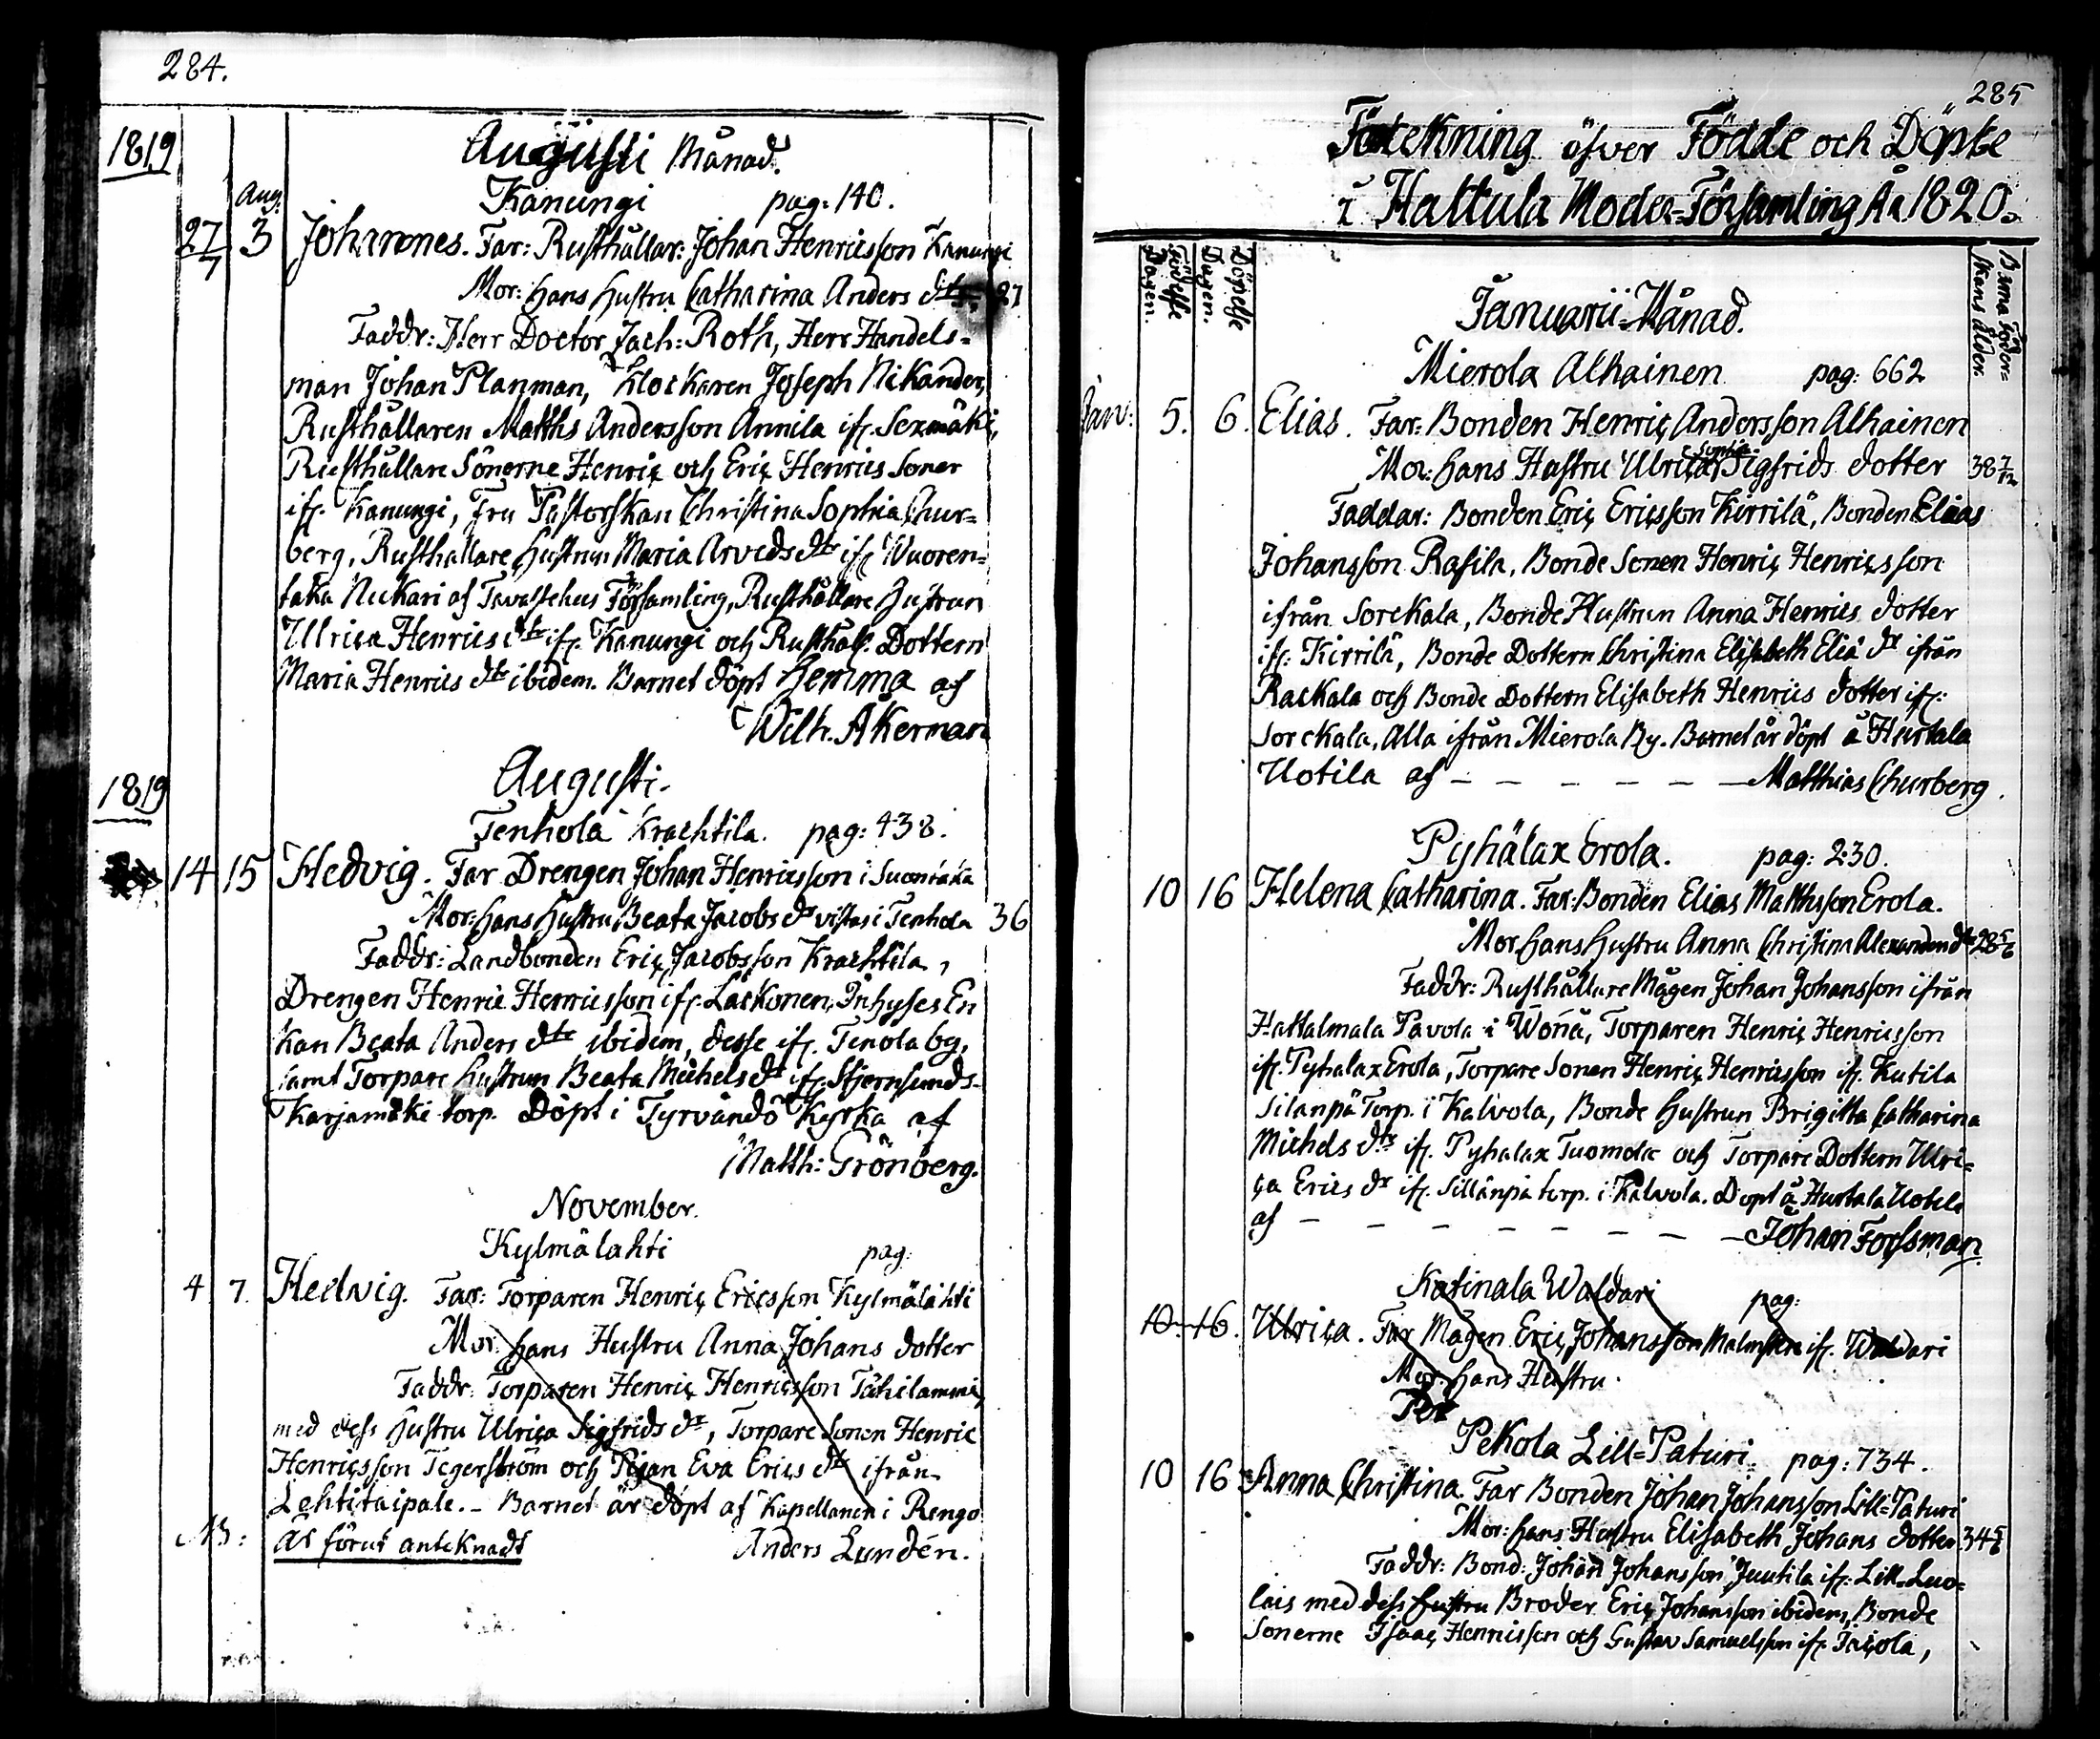 284.
1819
Augusti Månad.
Kanungi pag: 140.
Aug:
27/7 3 Johannes. Far: Rusthållar: Johan Henricsson Kanungi
Mor: hans hustru Catharina Anders dtr. 27
Faddr: Herr Doctor Zach: Roth, Herr Handels-
man Johan Planman, Klockaren Joseph Nikander,
Rusthållaren Matths Andersson Annila ifr. Sexmäki,
Rusthållare Sönerne Henric och Eric Henrics Söner
ifr. Kanungi, Fru Pastorskan Christina Sophia Chur-
berg, Rusthållare hustrun Maria Arvids dtr ifr Wuoren-
taka Nickari af Tavastehus Församling, Rusthållare Hustrun
Ulrica Henrics dtr ifr. Kanungi och Rusthål. Dottern
Maria Henrics dtr ibidem. Barnet döpt hemma af
Wilh. Åkerman
1819
Augusti.
Tenhola Krachtila. pag: 438.
14 15 Hedvig. Far Drengen Johan Henricsson i Suontaka
Mor: hans hustru Beata Jacobs dr vistas i Tenhola 36
Faddr: Landbonden Eric Jacobsson Krachtila,
Drengen Henric Henricsson ifr. Laskonen, Inhyses En
kan Beata Anders dtr ibidem, desse ifr. Tenola by,
samt Torpare hustrun Beata Michels dr ifr. Stjernsunds-
Karjamäki torp. Döpt i Tyrvändö Kyrka af
Matth: Grönberg.
November.
Kylmälahti pag:
4 7. Hedvig. Far: Torparen Henric Ericsson Kylmälahti
Mor. hans Hustru Anna Johans dotter
Faddr: Torparen Henric Henricsson Tähilammi,
med dess hustru Ulrica Sigfrids dr, Torpare Sonen Henric
Henricsson Tegerström och Pigan Eva Erics dtr ifrån
Lehtitaipale. - Barnet är döpt af Kapellanen i Rengo
NB: Är förut antecknadt Anders Lundén.
285
Förtekning öfver Födde och Döpte
i Hattula Moder-Församling År 1820.
Födelse Dagen.
Döpelse Dagen.
Barna Föder-
skans ålder.
Januarii Månad.
Mierola Alhainen pag: 662
Jan: 5. 6. Elias. Far: Bonden Henric Andersson Alhainen
Sophia
Mor: hans Hustru Ulrica Sigfrids dotter 38 7/12
Faddar: Bonden Eric Ericsson Kirrilä, Bonden Elias
Johansson Rasila, Bonde Sonen Henric Henricsson
ifrån Sorckala, Bonde Hustrun Anna Henrics dotter
ifr: Kirrilä, Bonde Dottern Christina Elisabeth Elia dr ifrån
Rackala och Bonde Dottern Elisabeth Henrics dotter ifr:
Sorckala, Alla ifrån Mierola By. Barnet är döpt å Hurtala
Uotila af — — — — — — Matthias Churberg.
Pyhälax Erola. pag: 230.
10 16 Helena Catharina. Far: Bonden Elias Matthsson Erola.
Mor hans Hustru Anna Christina Alexanders dtr 28 5/6
Faddr: Rusthållare Mågen Johan Johansson ifrån
Hattalmala Pavola i Wånå, Torparen Henric Henricsson
ifr. Pyhalax Erola, Torpare Sonen Henric Henricsson ifr. Kutila
Silanpä Torp. i Kalvola, Bonde hustrun Brigitta Catharina
Michels dtr ifr. Pyhalax Tuomola och Torpare Dottern Ulri-
ca Erics dr ifr. Sillänpä torp. i Kalvola. Döpt å Hurtala Uotila
af — — — — — — — Johan Forssman.
Katinala Waldari pag:
10. 16. Ulrica. Far Mågen Eric Johansson Malmsten ifr. Waldari
Mor: hans Hustru.
Pekola Lill-Paturi. pag: 734.
10 16 Anna Christina. Far Bonden Johan Johansson Lill-Paturi
Mor: hans Hustru Elisabeth Johans dotter 34 5/6
Faddr: Bond: Johan Johansson Juutila ifr: Lill-Luo-
lais med dess hustru Broder Eric Johansson ibidem, Bonde
Sonerne Isaac Henricsson och Gustav Samuelsson ifr. Iciola,